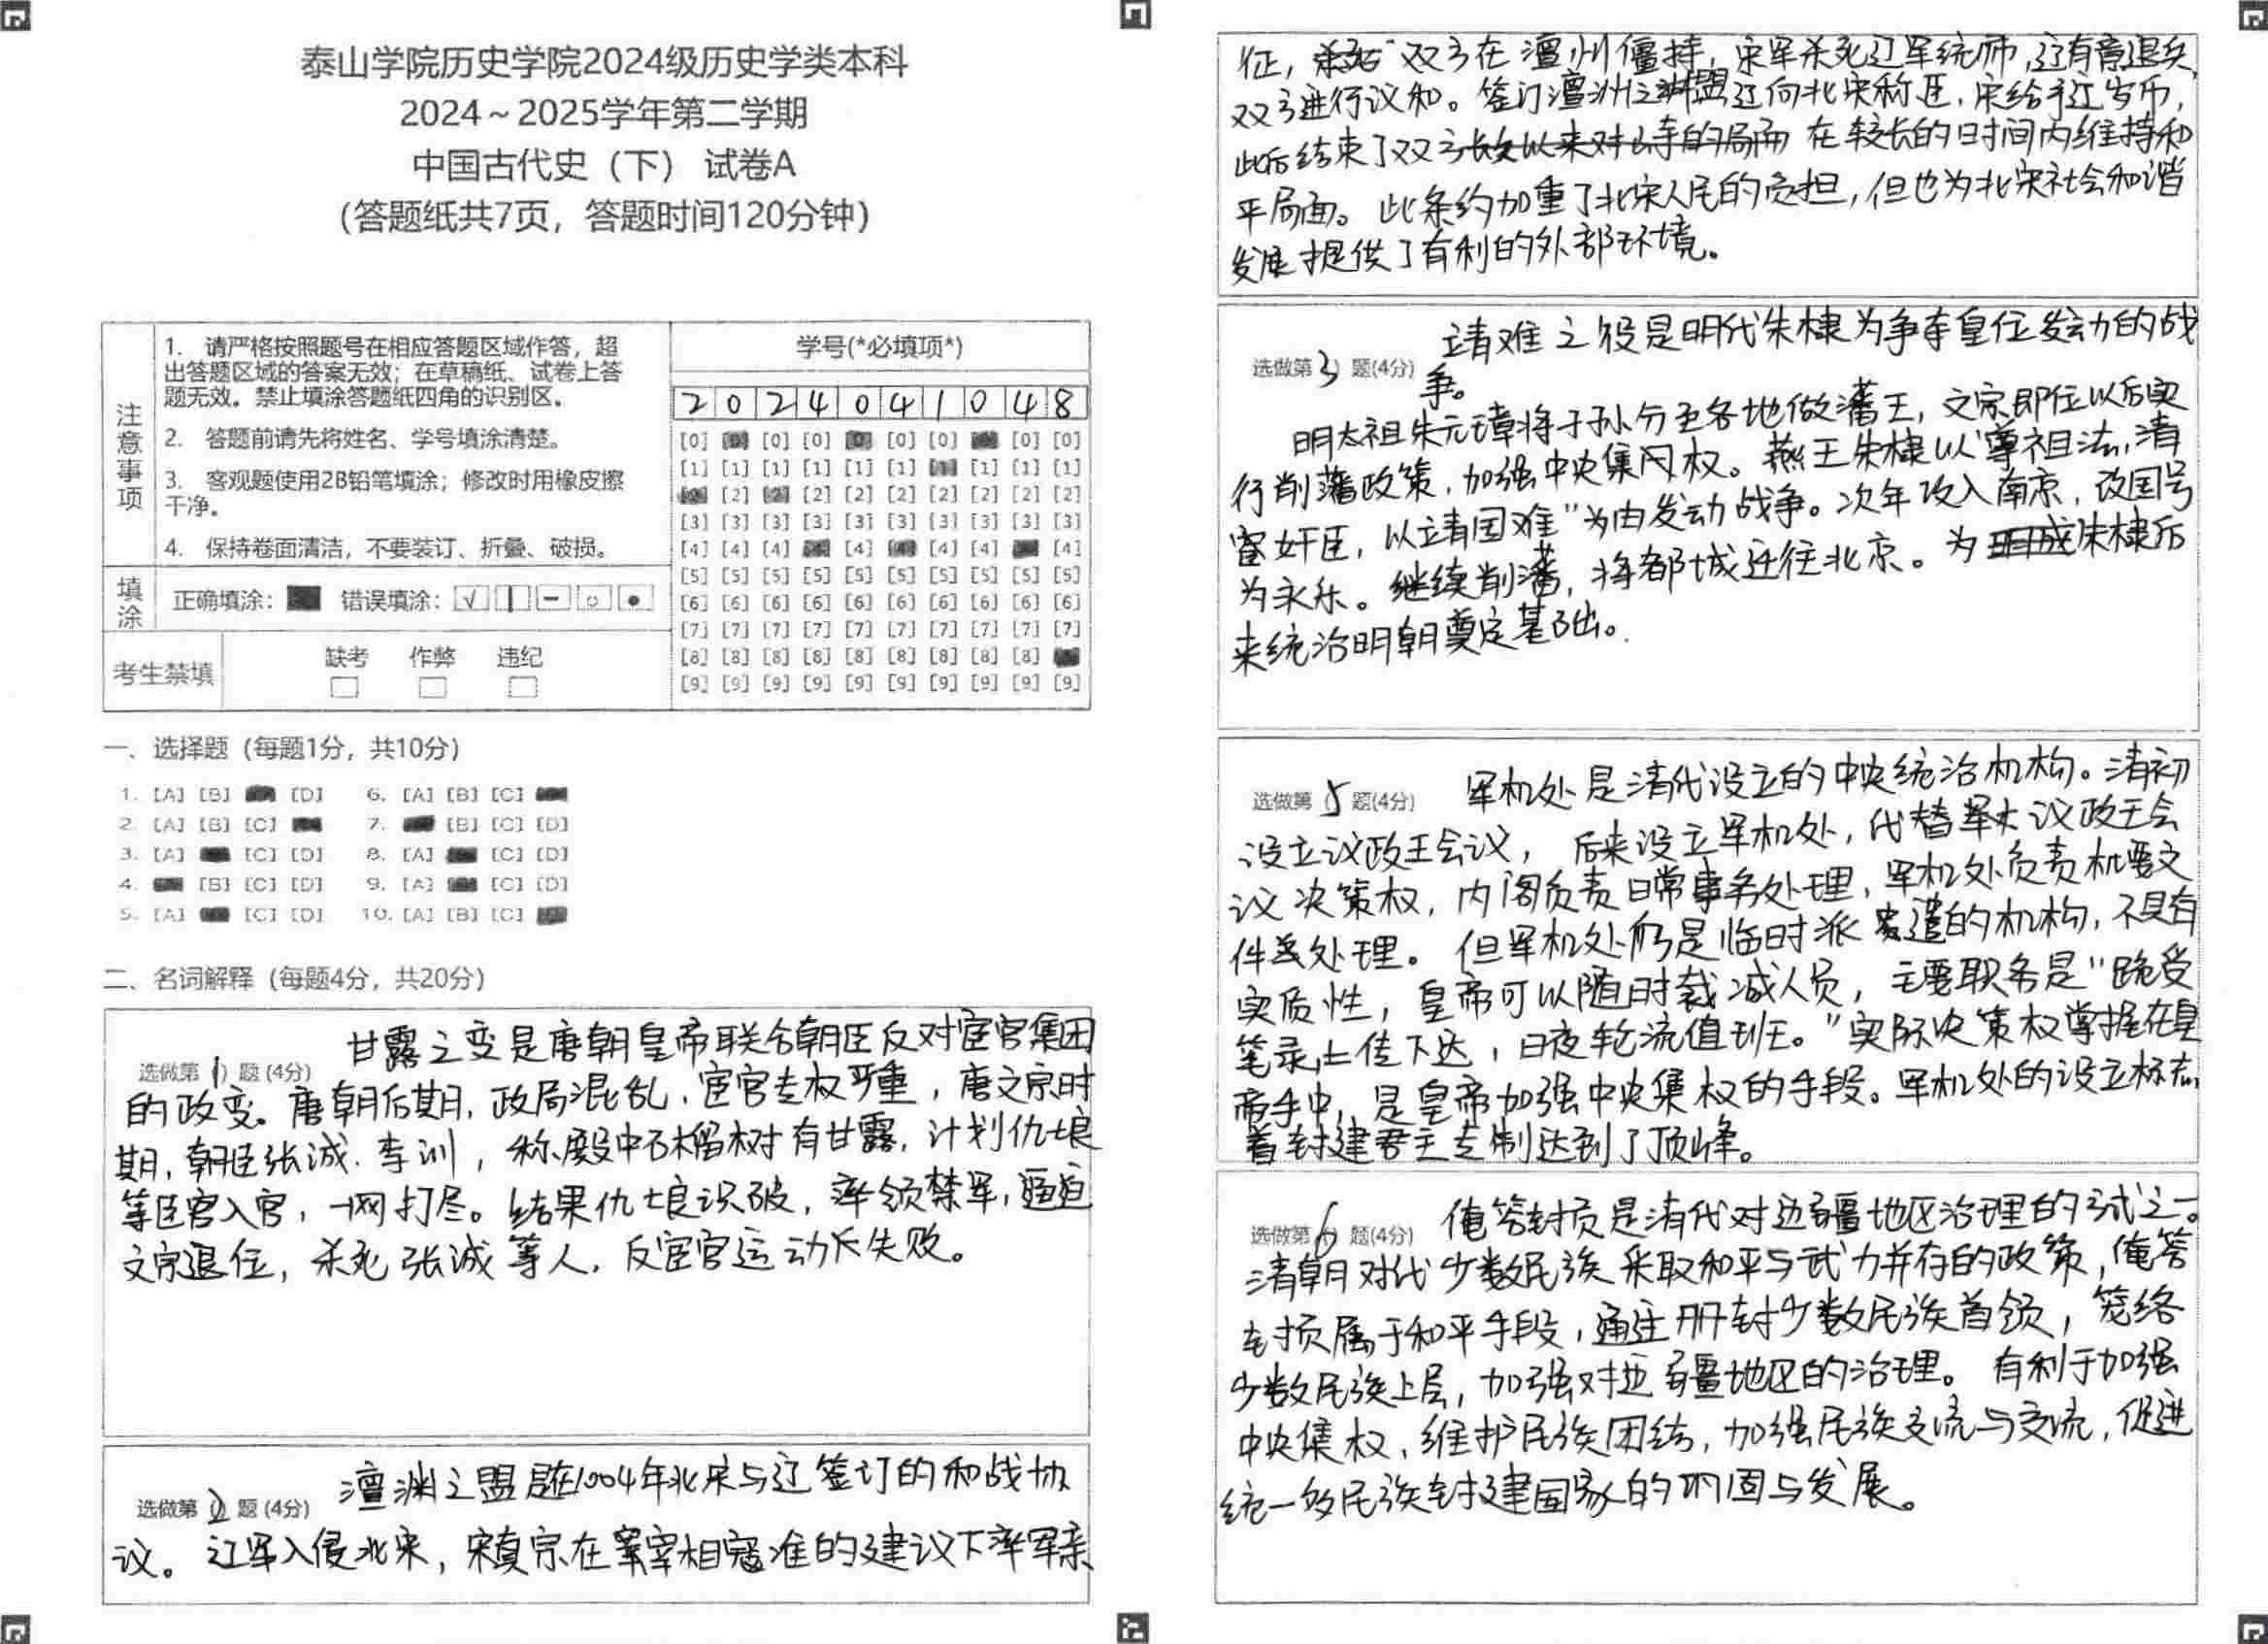 泰山学院历史学院2024级历史学类本科
2024～2025学年第二学期
中国古代史（下） 试卷A
（答题纸共7页，答题时间120分钟）
注意事项
1. 请严格按照题号在相应答题区域作答，超
出答题区域的答案无效；在草稿纸、试卷上答
题无效。禁止填涂答题纸四角的识别区。
2. 答题前请先将姓名、学号填涂清楚。
3. 客观题使用2B铅笔填涂；修改时用橡皮擦
干净。
4. 保持卷面清洁，不要装订、折叠、破损。
填涂
正确填涂： 错误填涂：
考生禁填
缺考 作弊 违纪
学号(*必填项*)
2 0 2 4 0 4 1 0 4 8
[0] [0] [0] [0] [0] [0] [0] [0]
[1] [1] [1] [1] [1] [1] [1] [1] [1]
[2] [2] [2] [2] [2] [2] [2] [2]
[3] [3] [3] [3] [3] [3] [3] [3] [3] [3]
[4] [4] [4] [4] [4] [4] [4]
[5] [5] [5] [5] [5] [5] [5] [5] [5] [5]
[6] [6] [6] [6] [6] [6] [6] [6] [6] [6]
[7] [7] [7] [7] [7] [7] [7] [7] [7] [7]
[8] [8] [8] [8] [8] [8] [8] [8] [8]
[9] [9] [9] [9] [9] [9] [9] [9] [9] [9]
一、选择题（每题1分，共10分）
1. [A] [B] [D] 6. [A] [B] [C]
2. [A] [B] [C] 7. [B] [C] [D]
3. [A] [C] [D] 8. [A] [C] [D]
4. [B] [C] [D] 9. [A] [C] [D]
5. [A] [C] [D] 10. [A] [B] [C]
二、名词解释（每题4分，共20分）
选做第（1）题(4分) 甘露之变是唐朝皇帝联合朝臣反对宦官集团
的政变。唐朝后期，政局混乱，宦官专权严重，唐文宗时
期，朝臣张诚、李训，称殿中石榴树有甘露，计划仇士良
等臣宫入宫，一网打尽。结果仇士良识破，率领禁军，逼迫
文宗退位，杀死张诚等人，反宦官运动失败。
选做第（2）题(4分) 澶渊之盟是在1004年北宋与辽签订的和战协
议。辽军入侵北宋，宋真宗在宰相寇准的建议下率军亲
征，双方在澶州僵持，宋军杀死辽军统帅，辽有意退兵，
双方进行议和。签订澶洲之盟辽向北宋称臣，宋给予辽岁币，
此后结束了双方长久以来对峙的局面 在较长的时间内维持和
平局面。此条约加重了北宋人民的负担，但也为北宋社会和谐
发展提供了有利的外部环境。
选做第（3）题(4分) 靖难之役是明代朱棣为争夺皇位发动的战
争。
明太祖朱元璋将子孙分至各地做藩王，文宗即位以后实
行削藩政策，加强中央集权。燕王朱棣以“尊祖法，清
奸臣，以靖国难”为由发动战争。次年攻入南京，改国号
为永乐。继续削藩，将都城迁往北京。为朱棣后
来统治明朝奠定基础。
选做第（5）题(4分) 军机处是清代设立的中央统治机构。清初
设立议政王会议，后来设立军机处，代替议政王会
议决策权，内阁负责日常事务处理，军机处负责机要文
件处理。但军机处仍是临时派遣的机构，不具有
实质性，皇帝可以随时裁减人员，主要职务是“跪受
笔录，上传下达，日夜轮流值班。”实际决策权掌握在皇
帝手中，是皇帝加强中央集权的手段。军机处的设立标志
着封建君主专制达到了顶峰。
选做第（6）题(4分) 俺答封贡是清代对边疆地区治理的方式之一。
清朝对代少数民族采取和平与武力并存的政策，俺答
封贡属于和平手段，通过册封少数民族首领，笼络
少数民族上层，加强对边疆地区的治理。有利于加强
中央集权，维护民族团结，加强民族交流与交流，促进
统一多民族封建国家的巩固与发展。